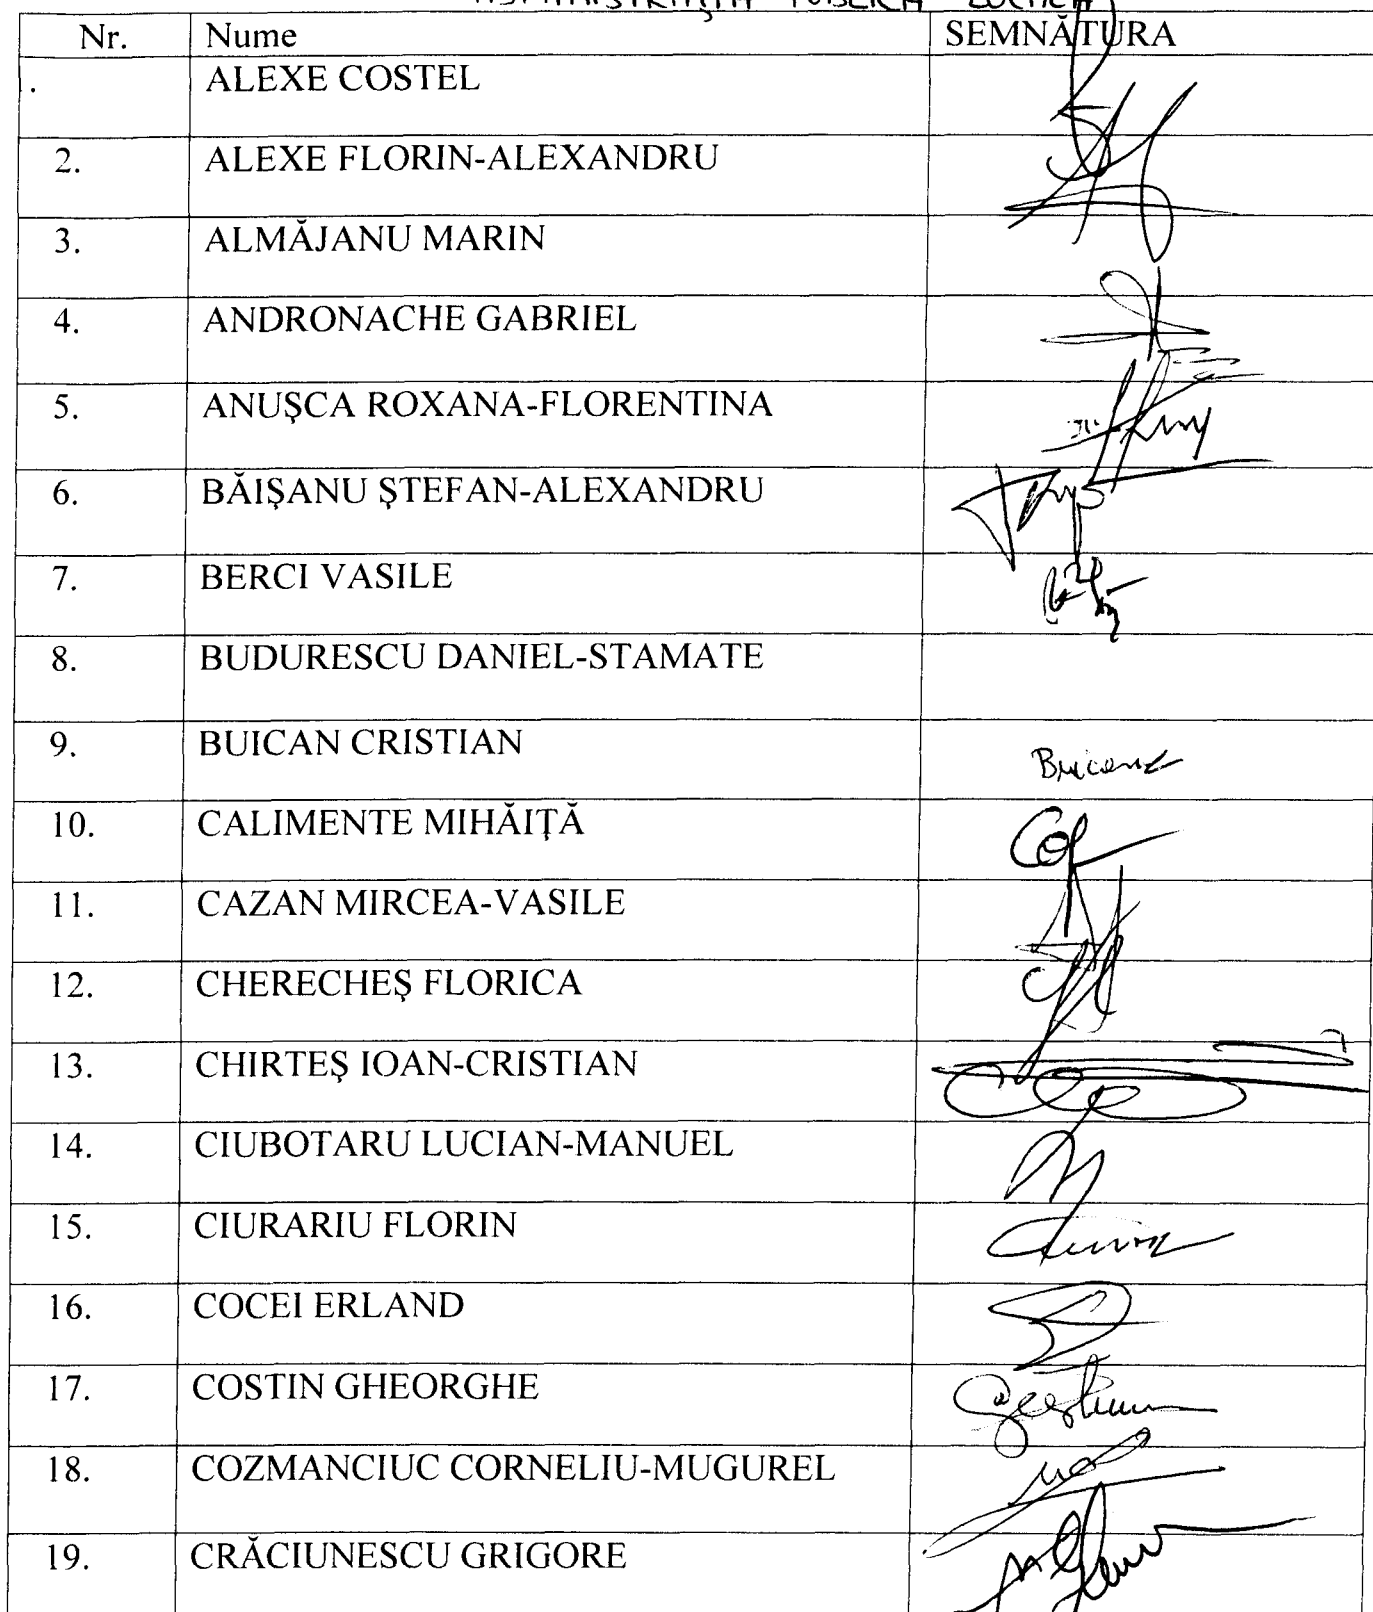 PUBLICĂ LOCALĂ
Nr. Nume SEMNĂTURA
. ALEXE COSTEL
2. ALEXE FLORIN-ALEXANDRU
3. ALMĂJANU MARIN
4. ANDRONACHE GABRIEL
5. ANUŞCA ROXANA-FLORENTINA
6. BĂIŞANU ŞTEFAN-ALEXANDRU
7. BERCI VASILE
8. BUDURESCU DANIEL-STAMATE
9. BUICAN CRISTIAN
10. CALIMENTE MIHĂIŢĂ
11. CAZAN MIRCEA-VASILE
12. CHERECHEŞ FLORICA
13. CHIRTEŞ IOAN-CRISTIAN
14. CIUBOTARU LUCIAN-MANUEL
15. CIURARIU FLORIN
16. COCEI ERLAND
17. COSTIN GHEORGHE
18. COZMANCIUC CORNELIU-MUGUREL
19. CRĂCIUNESCU GRIGORE